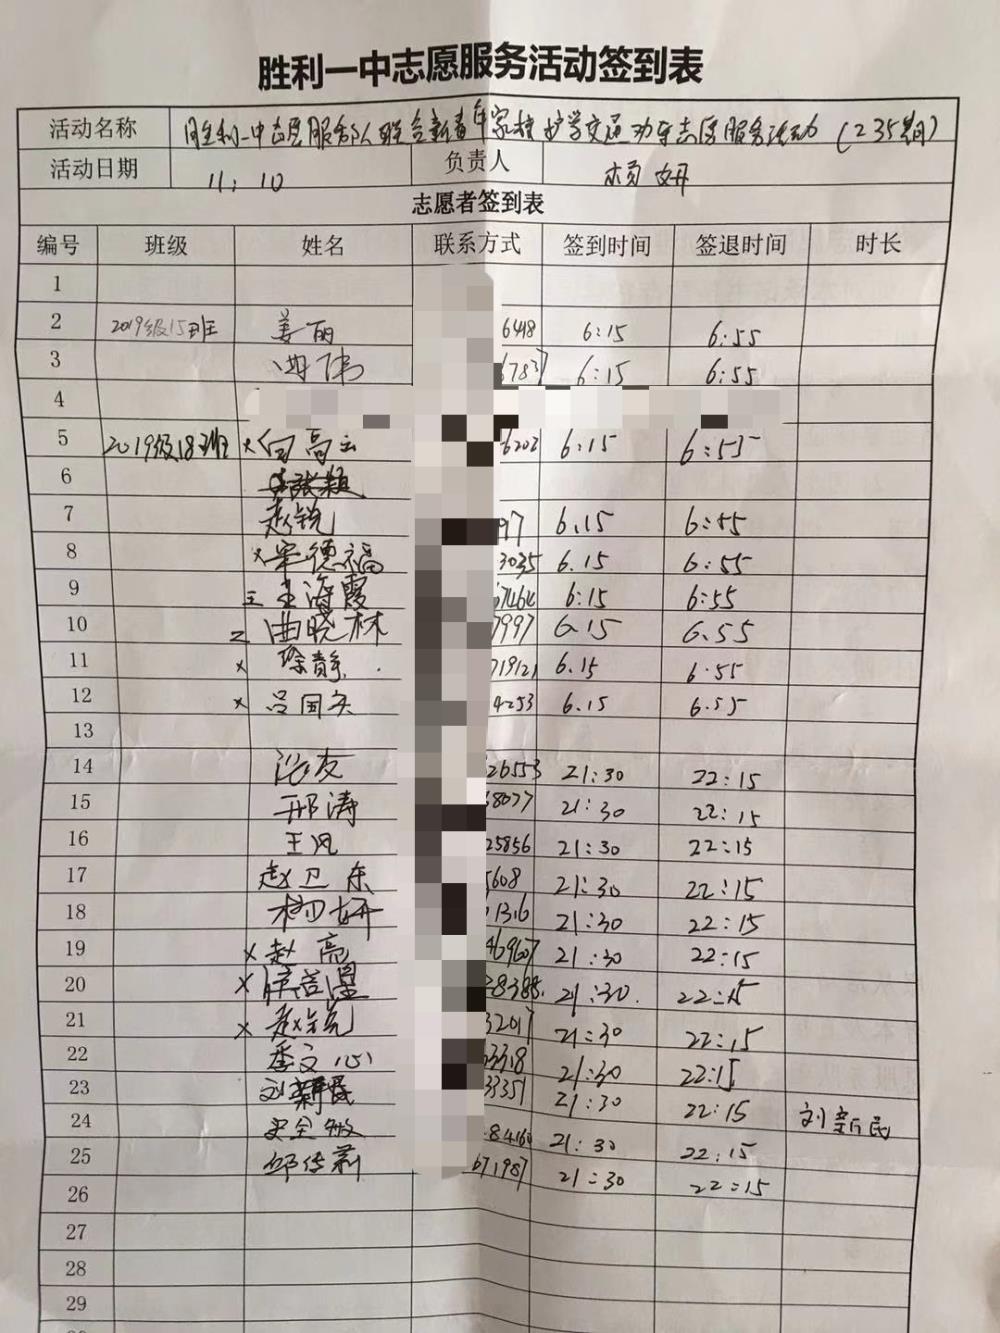 胜利一中志愿服务活动签到表
活动名称 胜利一中志愿服务队联合新青年家校护学交通劝导志愿服务活动(235期)
活动日期 11:10 负责人 妍
志愿者签到表
编号 班级 姓名 联系方式 签到时间 签退时间 时长
1
2 2019级15班 姜丽 6418 6:15 6:55
3 6:15 6:55
4
5 2019级18班 x 向高云 6203 6:15 6:55
6 张颖
7 赵锐 97 6.15 6:55
8 x 宋德福 3035 6.15 6:55
9 王海霞 67464 6:15 6:55
10 曲晓林 7997 6.15 6.55
11 x 徐静 719121 6.15 6.55
12 x 吕国 4253 6.15 6.55
13
14 26553 21:30 22:15
15 邢涛 68077 21:30 22:15
16 王风 25856 21:30 22:15
17 赵卫东 5608 21:30 22:15
18 杨妍 1316 21:30 22:15
19 x 赵亮 469607 21:30 22:15
20 x 28388. 21:30. 22:15
21 x 赵锐 32017 21:30 22:15
22 季文心 63318 21:30 22:15
23 刘新民 33351 21:30 22:15 刘新民
24 史全敏 84160 21:30 22:15
25 邱传莉 671987 21:30 22:15
26
27
28
29